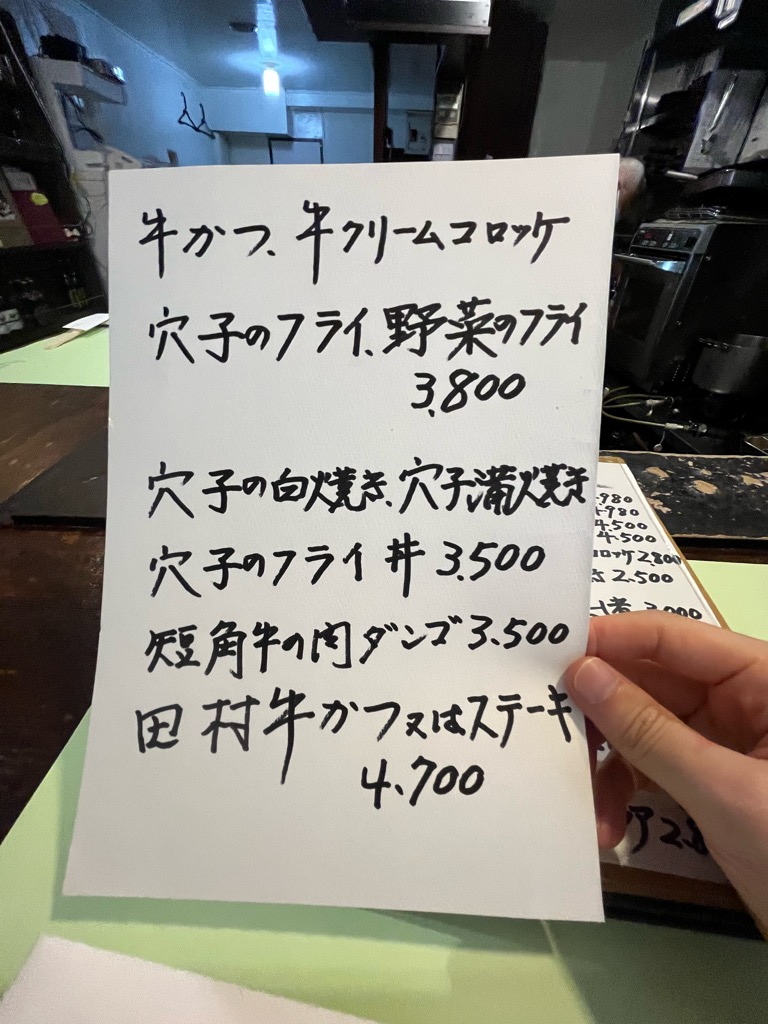 牛かつ、牛クリームコロッケ
穴子のフライ、野菜のフライ
3,800
穴子の白焼き、穴子蒲焼き
穴子のフライ丼 3,500
短角牛の肉ダンゴ 3,500
田村牛かつ又はステーキ
4,700
980
980
4,500
4,500
ロッケ 2,800
2,500
3,000